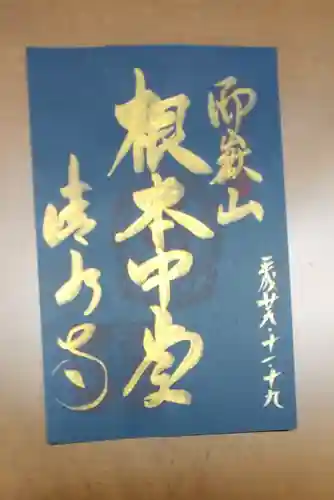 御嶽山
根本中堂
清水寺
平成廿八・十一・十九